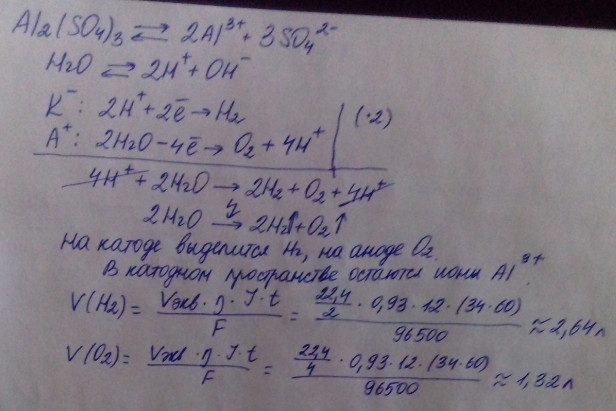 Al₂(SO₄)₃ ⇄ 2Al³⁺ + 3SO₄²⁻
H₂O ⇄ 2H⁺ + OH⁻
K⁻: 2H⁺ + 2ē → H₂
A⁺: 2H₂O - 4ē → O₂ + 4H⁺ | (·2)
4H⁺ + 2H₂O → 2H₂ + O₂ + 4H⁺
2H₂O → 2H₂↑ + O₂↑
На катоде выделится H₂, на аноде O₂.
В катодном пространстве остаются ионы Al³⁺.
V(H₂) = Vэкв · η · I · t / F = 22,4/2 · 0,93 · 12 · (34·60) / 96500 ≈ 2,64 л
V(O₂) = Vэкв · η · I · t / F = 22,4/4 · 0,93 · 12 · (34·60) / 96500 ≈ 1,32 л